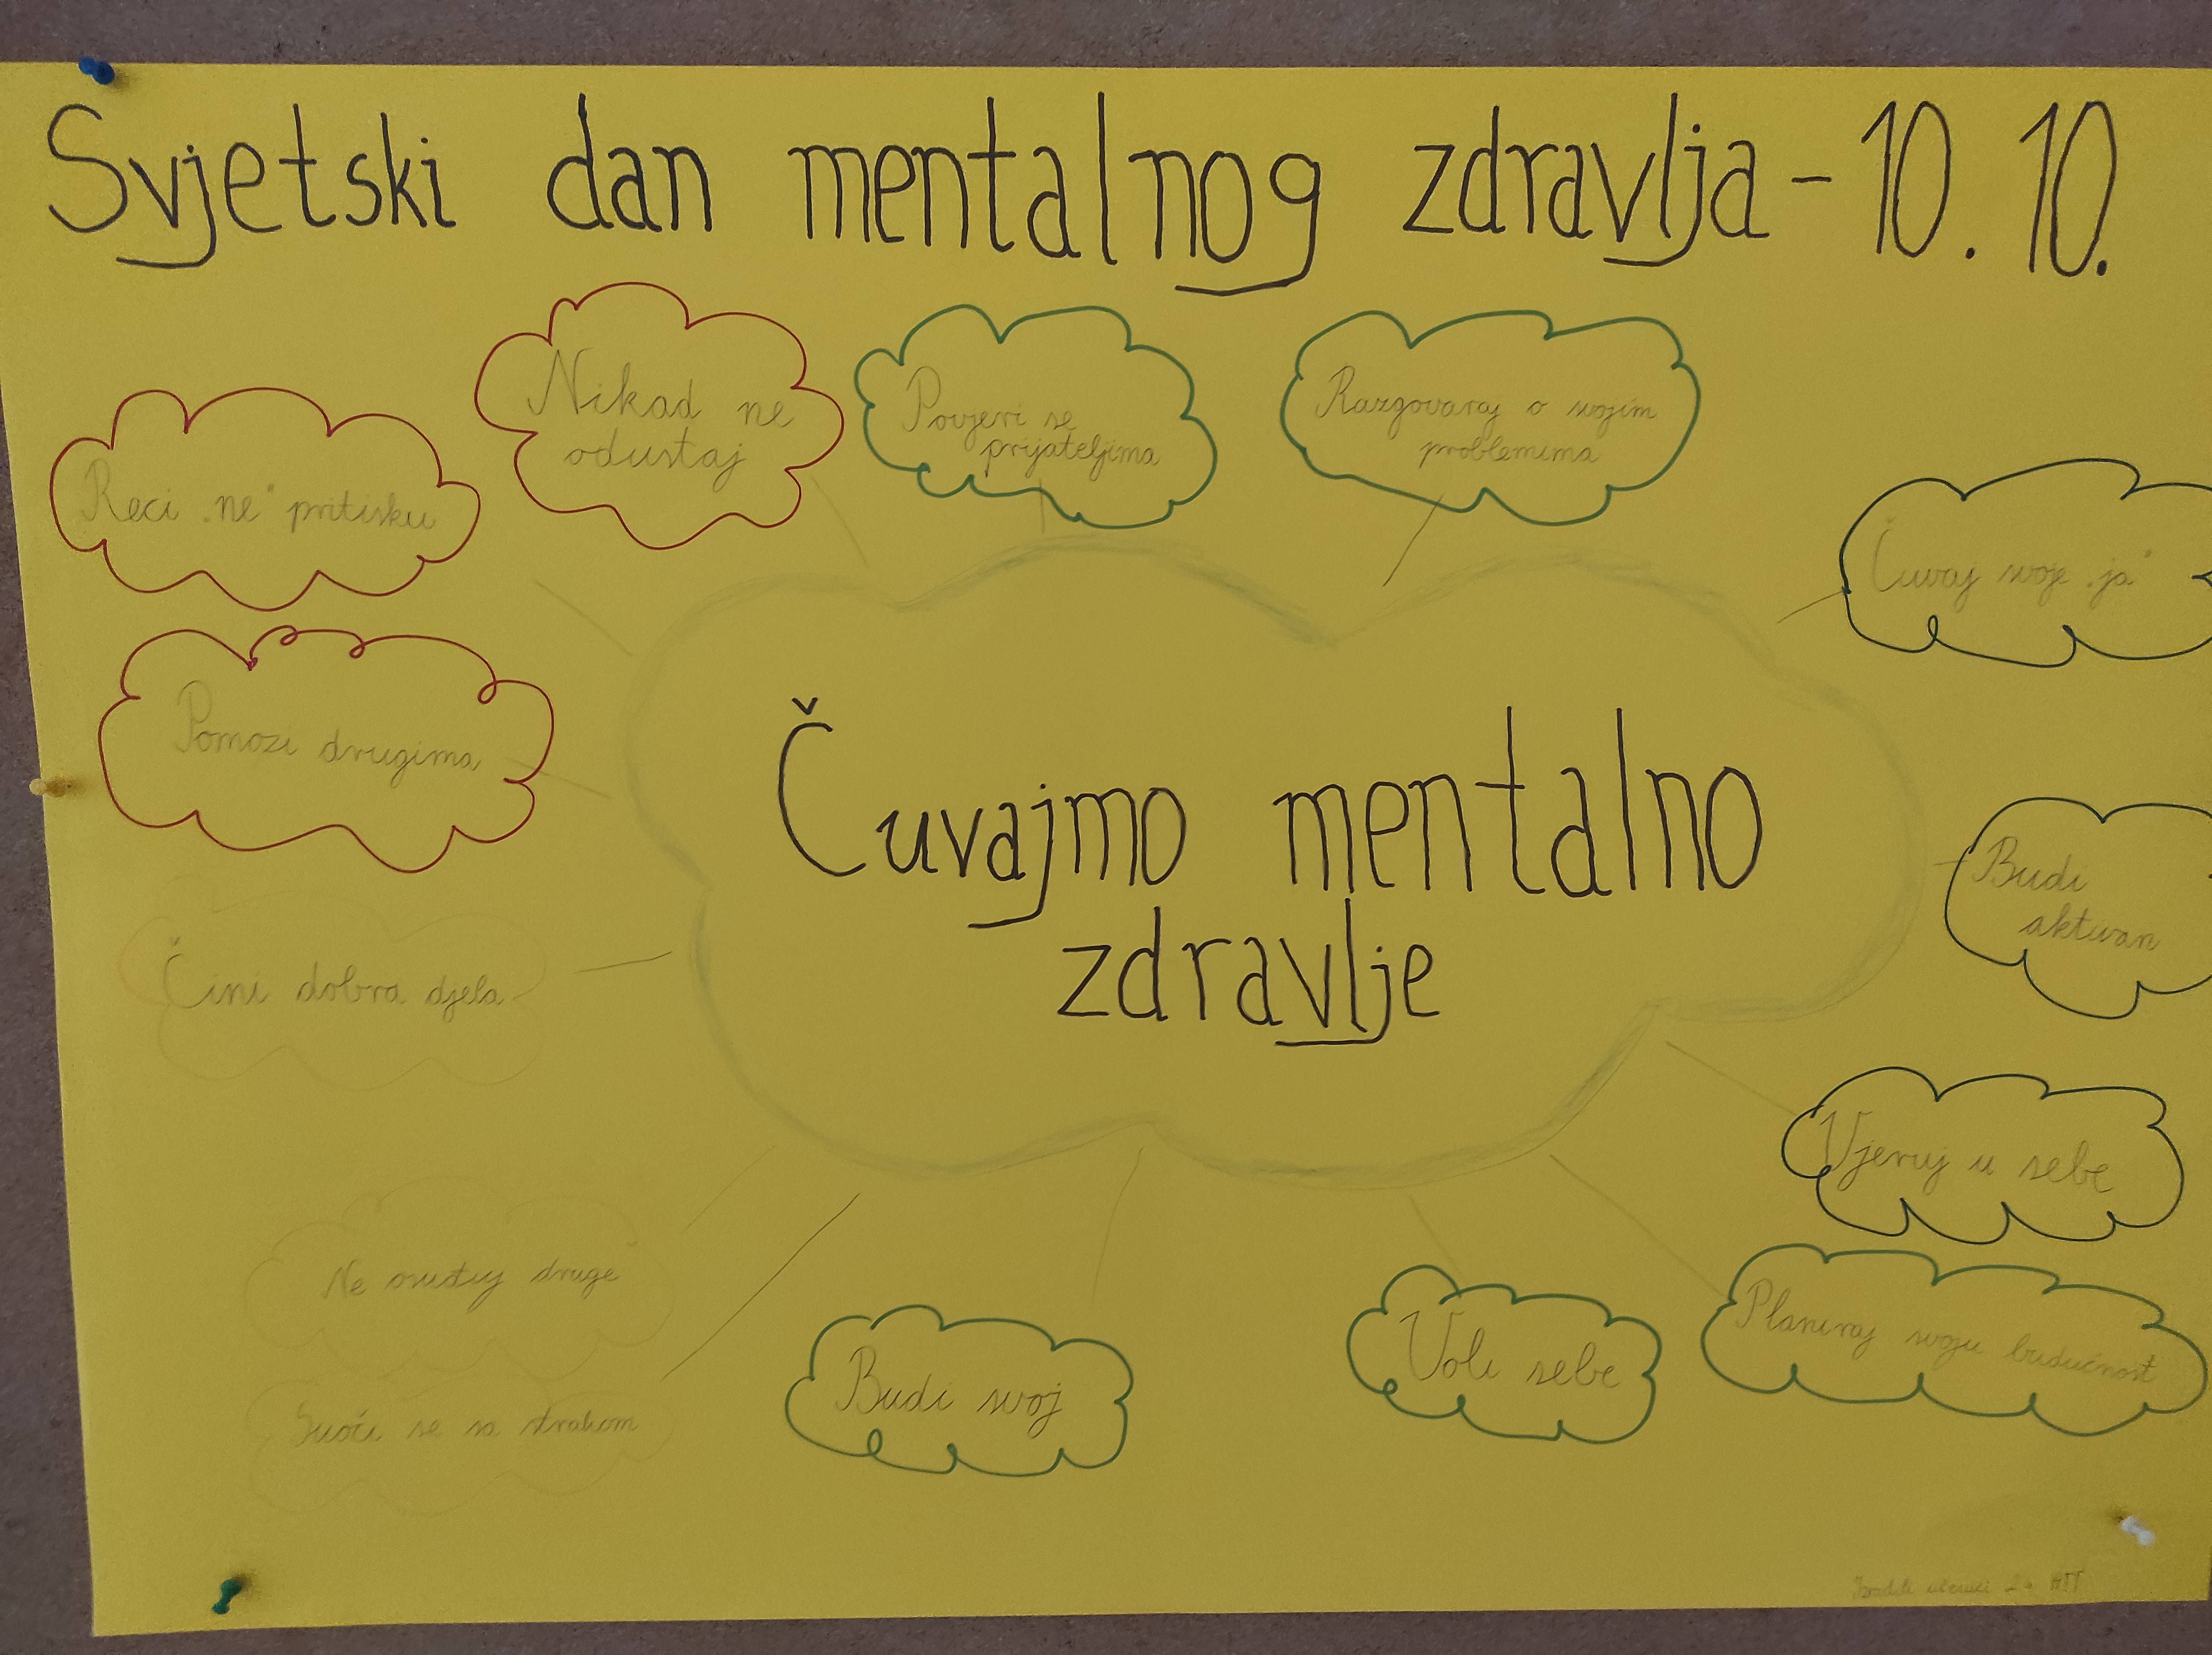 Svjetski dan mentalnog zdravlja - 10. 10.
Nikad ne
odustaj
Povjeri se
prijateljima
Razgovaraj o svojim
problemima
Reci „ne" pritisku
Čuvaj svoje „ja"
Pomozi drugima
Čuvajmo mentalno
zdravlje
Budi
aktivan
Čini dobra djela
Vjeruj u sebe
Ne osuđuj druge
Planiraj svoju budućnost
Voli sebe
Budi svoj
Suoči se sa strahom
učenici 2.